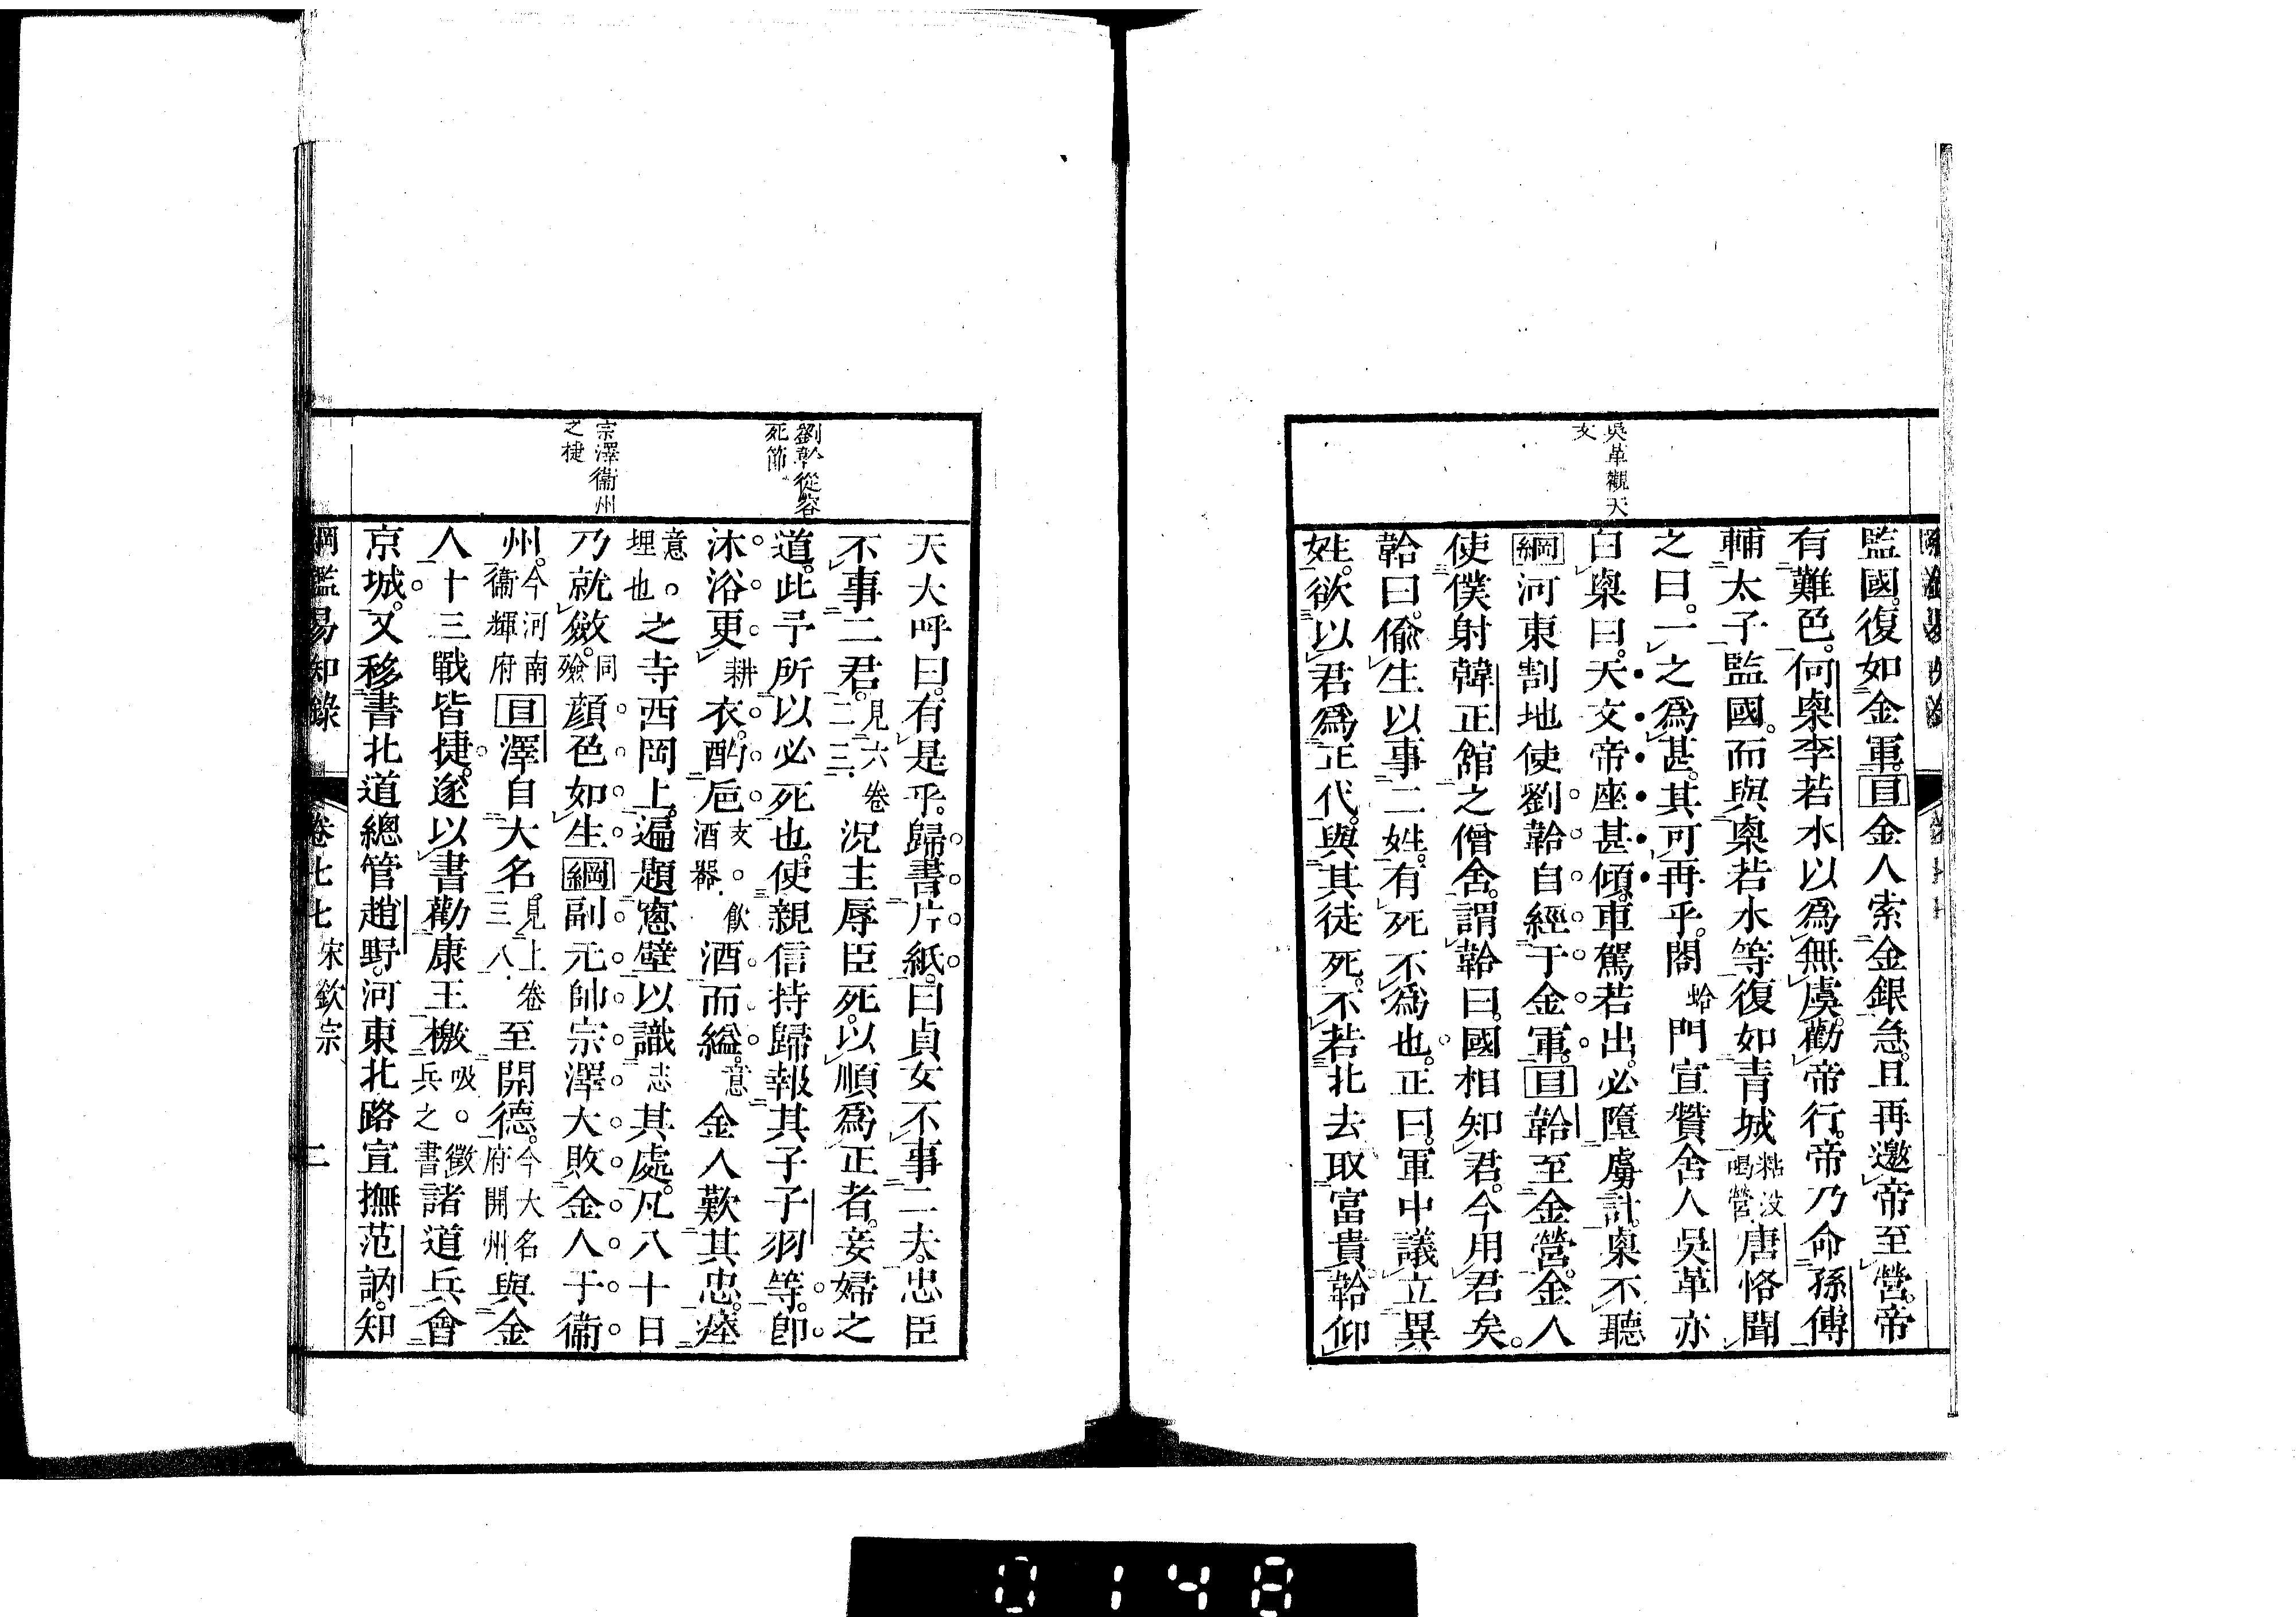 吳革觀天
文
監國。復如金軍。目金人索金銀急。且再邀帝至營。帝
有難色。何㮚李若水以爲無虞。勸帝行。帝乃命孫傅
輔太子監國。而與㮚若水等復如青城粘没喝營唐恪聞
之曰。一之爲甚。其可再乎。閤蛤門宣贊舍人吳革亦
白㮚曰。天文帝座甚傾。車駕若出。必墮虜計。㮚不聽
綱河東割地使劉韐自經于金軍。目韐至金營。金人
使僕射韓正館之僧舍。謂韐曰。國相知君。今用君矣。
韐曰。偷生以事二姓。有死不爲也。正曰。軍中議立異
姓。欲以君爲正代。與其徒死。不若北去取富貴。韐仰
劉韐從容
死節
宗澤衞州
之捷
天大呼曰。有是乎。歸書片紙。曰貞女不事二夫。忠臣
不事二君。見六卷二三況主辱臣死。以順爲正者。妾婦之
道。此予所以必死也。使親信持歸報其子子羽等。卽
沐浴更耕衣。酌巵支。飲酒器酒而縊。意金人歎其忠。瘞
意。埋也之寺西岡上。遍題窻壁以識志其處。凡八十日
乃就斂。同殮顔色如生綱副元帥宗澤大敗金人于衞
州。今河南衞輝府目澤自大名。見上卷三八至開德。今大名府開州與金
人十三戰皆捷。遂以書勸康王檄吸。徵兵之書諸道兵會
京城。又移書北道總管趙野。河東北路宣撫范訥。知
綱鑑易知錄 卷七七 宋欽宗 二
0148